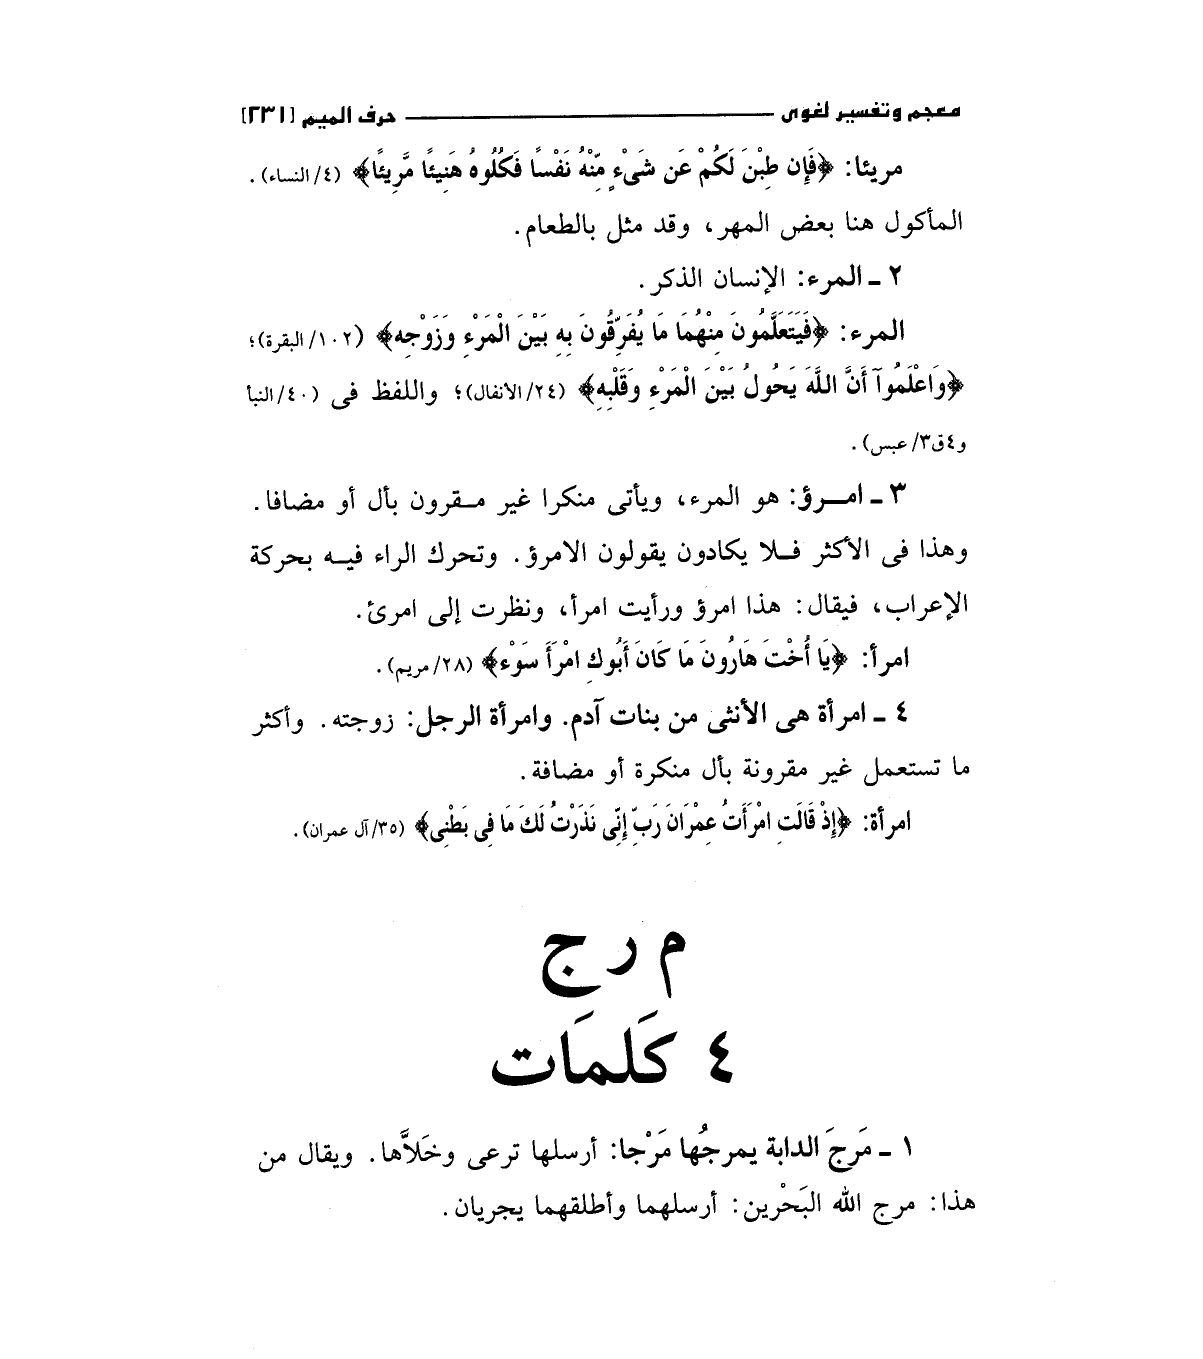 معجم وتفسير لغوى ـــــــ حرف الميم [٢٣١]
مريئا: ﴿فَإِن طِبْنَ لَكُمْ عَن شَىْءٍ مِّنْهُ نَفْسًا فَكُلُوهُ هَنِيئًا مَّرِيئًا﴾ (٤/ النساء).
المأكول هنا بعض المهر، وقد مثل بالطعام.
٢ ـ المرء: الإنسان الذكر.
المرء: ﴿فَيَتَعَلَّمُونَ مِنْهُمَا مَا يُفَرِّقُونَ بِهِ بَيْنَ الْمَرْءِ وَزَوْجِهِ﴾ (١٠٢/ البقرة)؛
﴿وَاعْلَمُوآ أَنَّ اللَّهَ يَحُولُ بَيْنَ الْمَرْءِ وَقَلْبِهِ﴾ (٢٤/ الأنفال)؛ واللفظ فى (٤٠/ النبأ
و٤ق٣/ عبس).
٣ ـ امــرؤ: هو المرء، ويأتى منكرا غير مـقرون بأل أو مضافا.
وهذا فى الأكثر فـلا يكادون يقولون الامرؤ. وتحرك الراء فيـه بحركة
الإعراب، فيقال: هذا امرؤ ورأيت امرأ، ونظرت إلى امرئ.
امرأ: ﴿يَا أُخْتَ هَارُونَ مَا كَانَ أَبُوكِ امْرَأَ سَوْء﴾ (٢٨/ مريم).
٤ ـ امرأة هى الأنثى من بنات آدم. وامرأة الرجل: زوجته. وأكثر
ما تستعمل غير مقرونة بأل منكرة أو مضافة.
امرأة: ﴿إِذْ قَالَتِ امْرَأَتُ عِمْرَانَ رَبِّ إِنِّى نَذَرْتُ لَكَ مَا فِى بَطْنِى﴾ (٣٥/ آل عمران).
م ر ج
٤ كَلمَات
١ ـ مَرجَ الدابة يمرجُها مَرْجا: أرسلها ترعى وخَلاَّها. ويقال من
هذا: مرج الله البَحْرين: أرسلهما وأطلقهما يجريان.